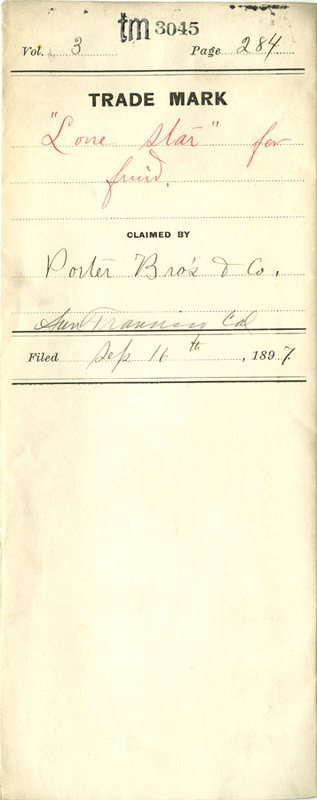 tm 3045
Vol. 3 Page 284
TRADE MARK
"Lone Star" for
fruid.
CLAIMED BY
Porter Bro's & Co.
San Francisco Cal
Filed Sep 16th, 1897